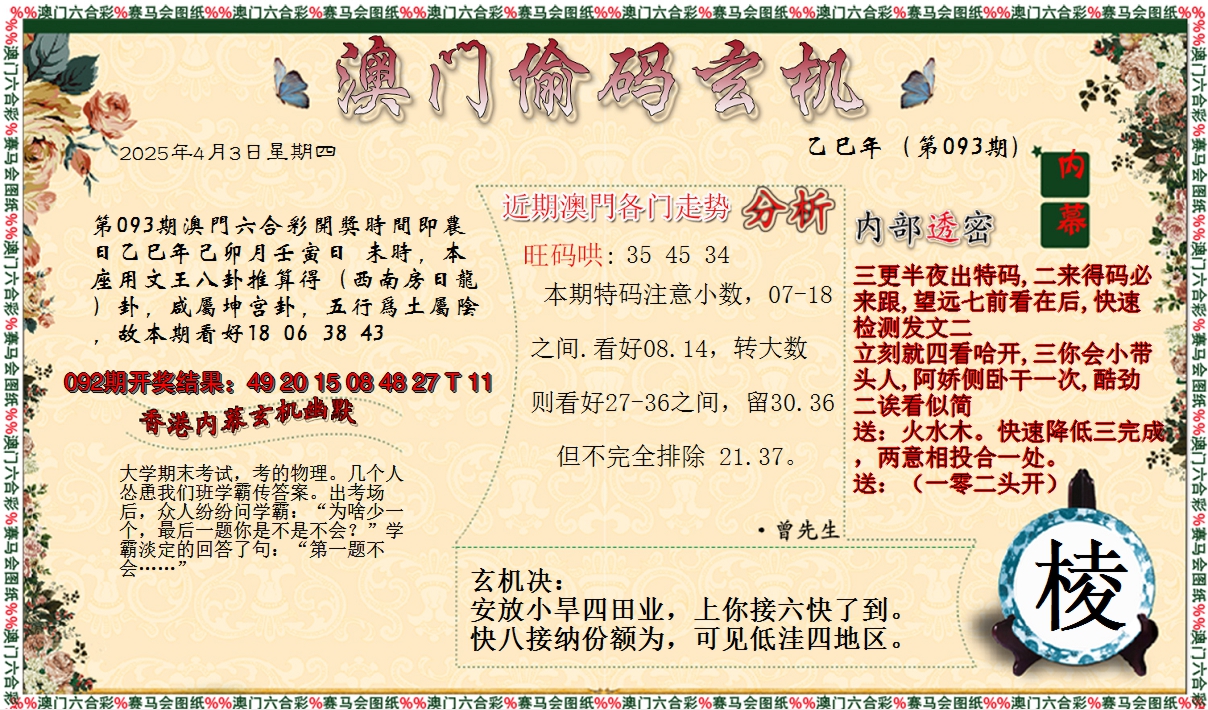 %%澳门六合彩%赛马会图纸%%澳门六合彩%赛马会图纸%%澳门六合彩%赛马会图纸%%澳门六合彩%赛马会图纸%%澳门六合彩%赛马会图纸%%澳门六合彩%赛马会图纸%%
澳门偷码玄机
2025年4月3日星期四
乙巳年（第093期）
内幕
第093期澳門六合彩開獎時間即農
日乙巳年己卯月壬寅日 未時，本
座用文王八卦推算得（西南房日龍
）卦，咸屬坤宫卦，五行爲土屬陰
，故本期看好18 06 38 43
092期开奖结果：49 20 15 08 48 27 T 11
香港内幕玄机幽默
大学期末考试，考的物理。几个人
怂恿我们班学霸传答案。出考场
后，众人纷纷问学霸：“为啥少一
个，最后一题你是不是不会？”学
霸淡定的回答了句：“第一题不
会……”
近期澳門各门走势 分析
旺码哄: 35 45 34
本期特码注意小数，07-18
之间.看好08.14，转大数
则看好27-36之间，留30.36
但不完全排除 21.37。
·曾先生
内部透密
三更半夜出特码,二来得码必
来跟,望远七前看在后,快速
检测发文二
立刻就四看哈开,三你会小带
头人,阿娇侧卧干一次,酷劲
二诶看似简
送：火水木。快速降低三完成
，两意相投合一处。
送：（一零二头开）
玄机决：
安放小旱四田业，上你接六快了到。
快八接纳份额为，可见低洼四地区。
棱
%%澳门六合彩%赛马会图纸%%澳门六合彩%赛马会图纸%%澳门六合彩%赛马会图纸%%澳门六合彩%赛马会图纸%%澳门六合彩%赛马会图纸%%澳门六合彩%赛马会图纸%%